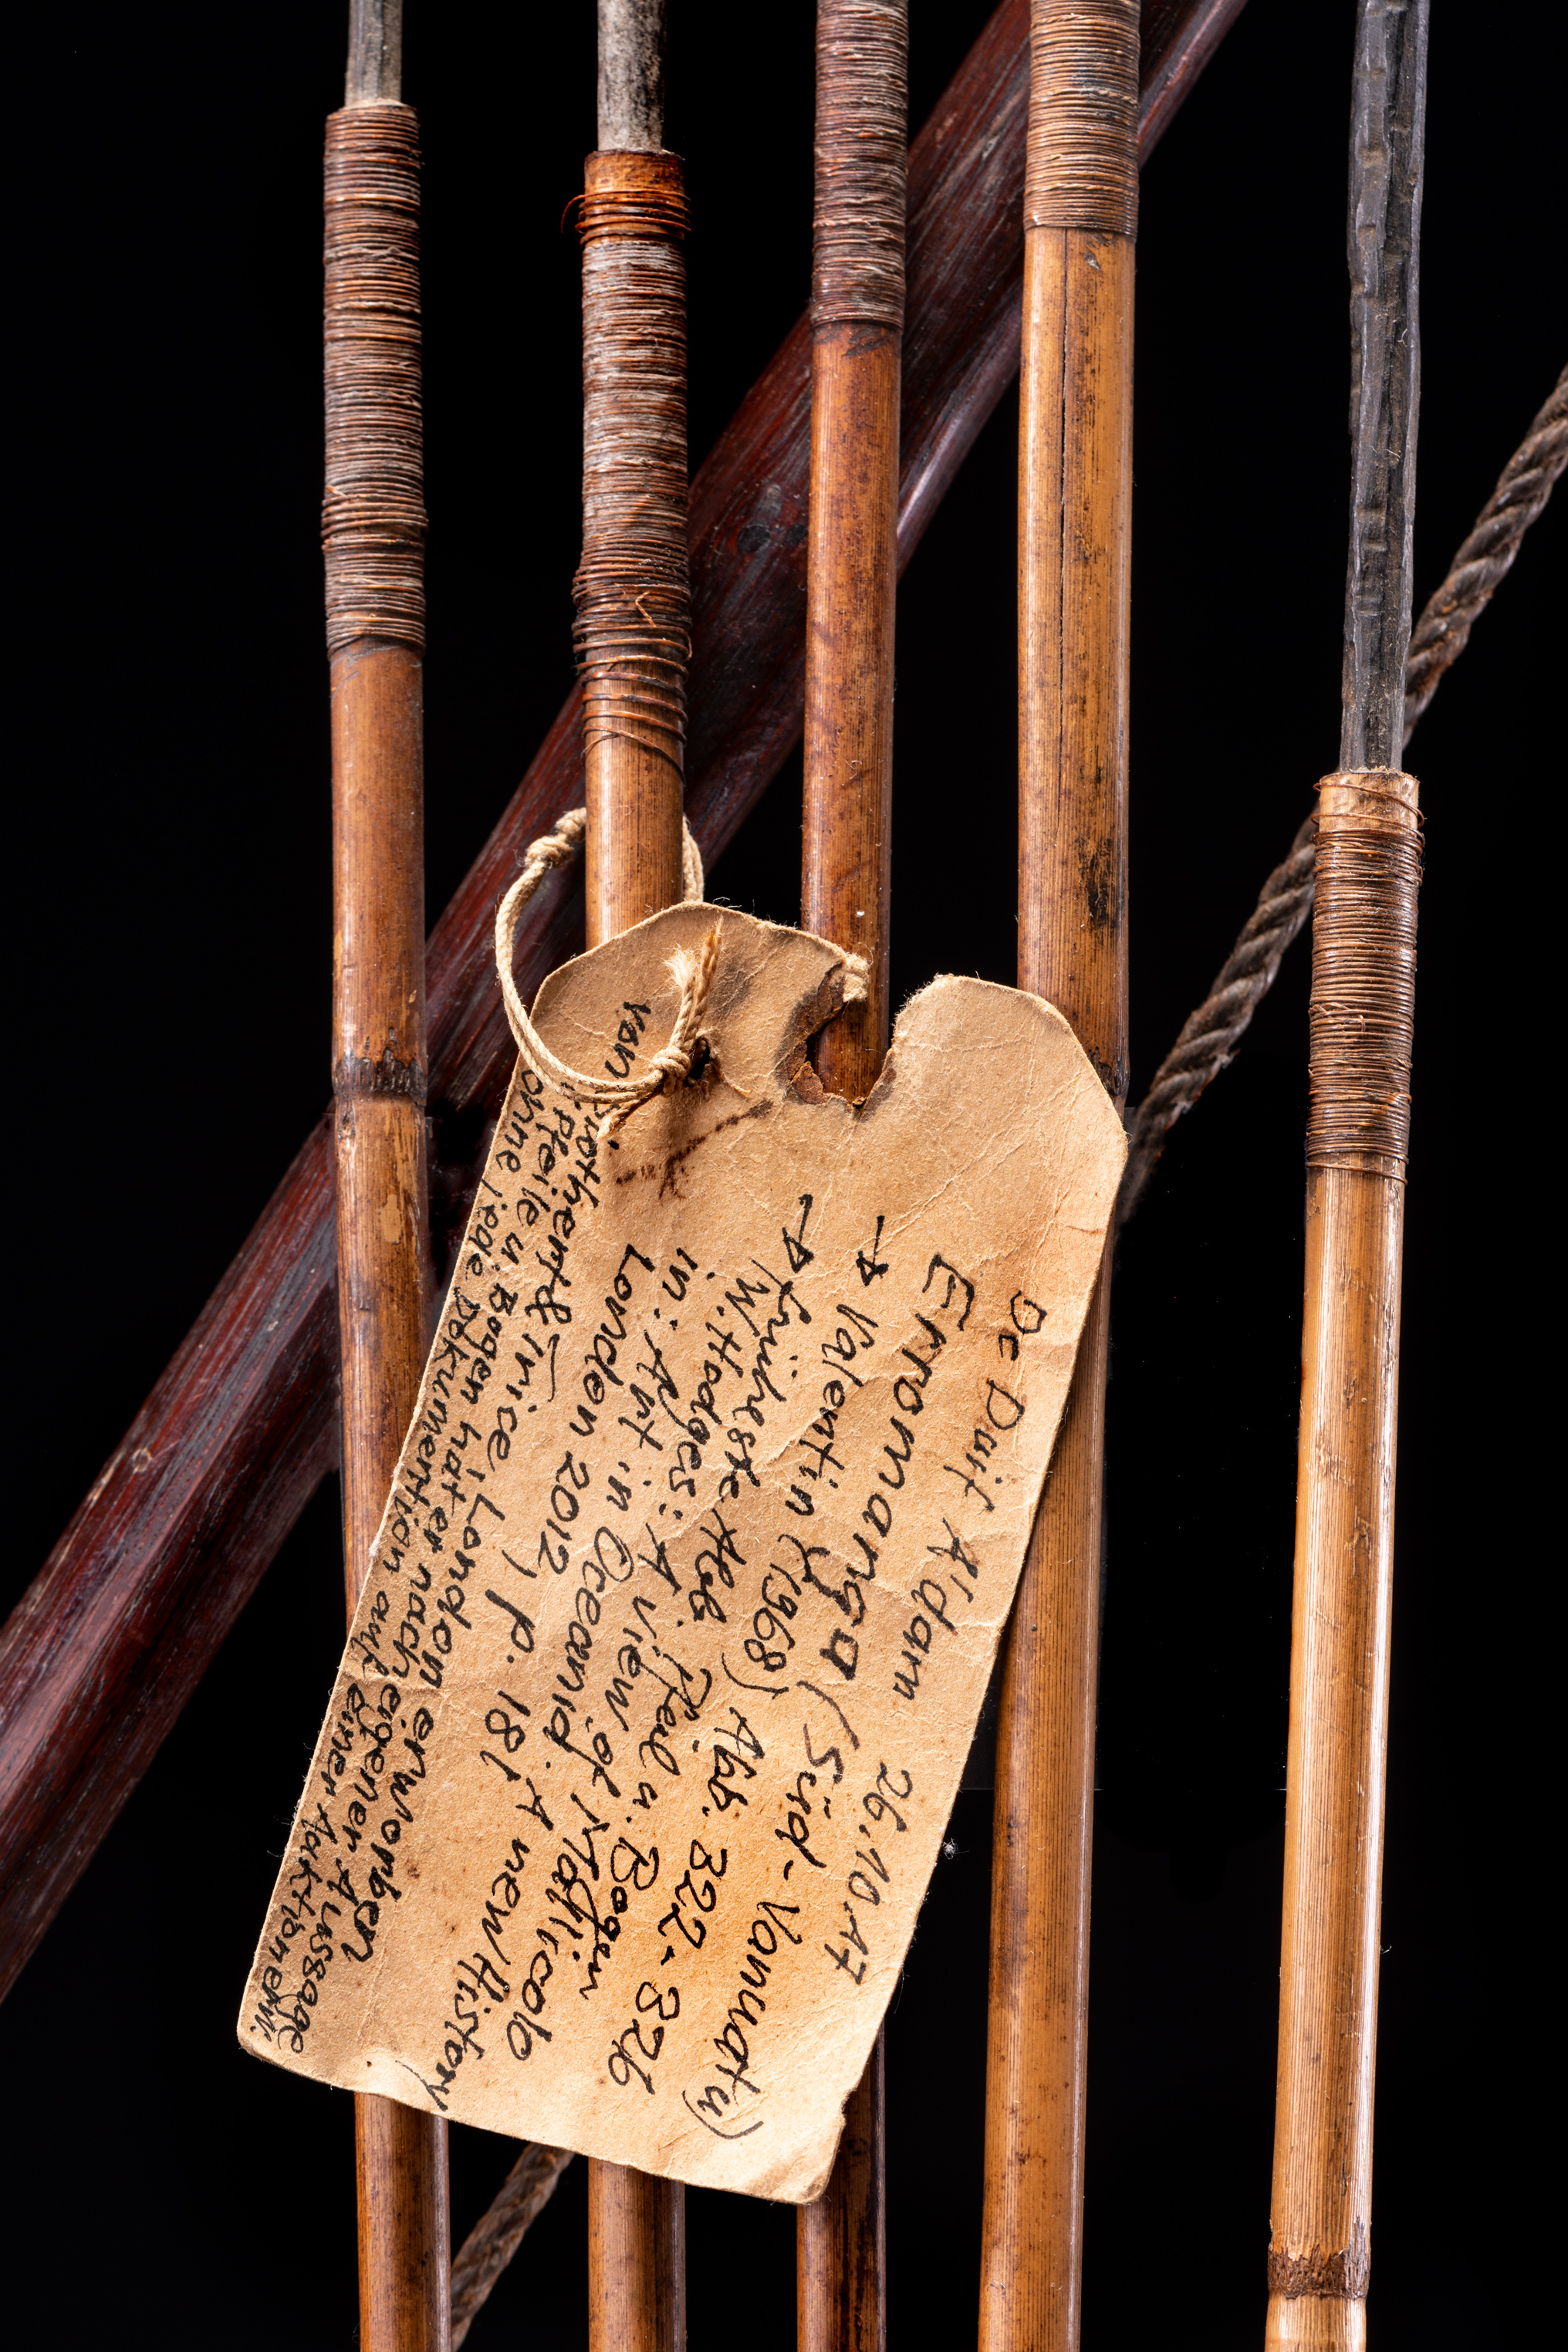 De Duif A'dam 26.10.17
Erromanga (Süd-Vanuatu)
→ Valentin (1968) Abb. 322-326
→ früheste Abb. Pfeil u. Bogen
W. Hodges: A view of Mallicolo
in: Art in Oceania. A new History
London 2012, p. 181
von & Trice, London erworben
Pfeile u. Bogen hat er nach eigener Aussage
ohne jede Dokumentation auf einer Auktion erw.